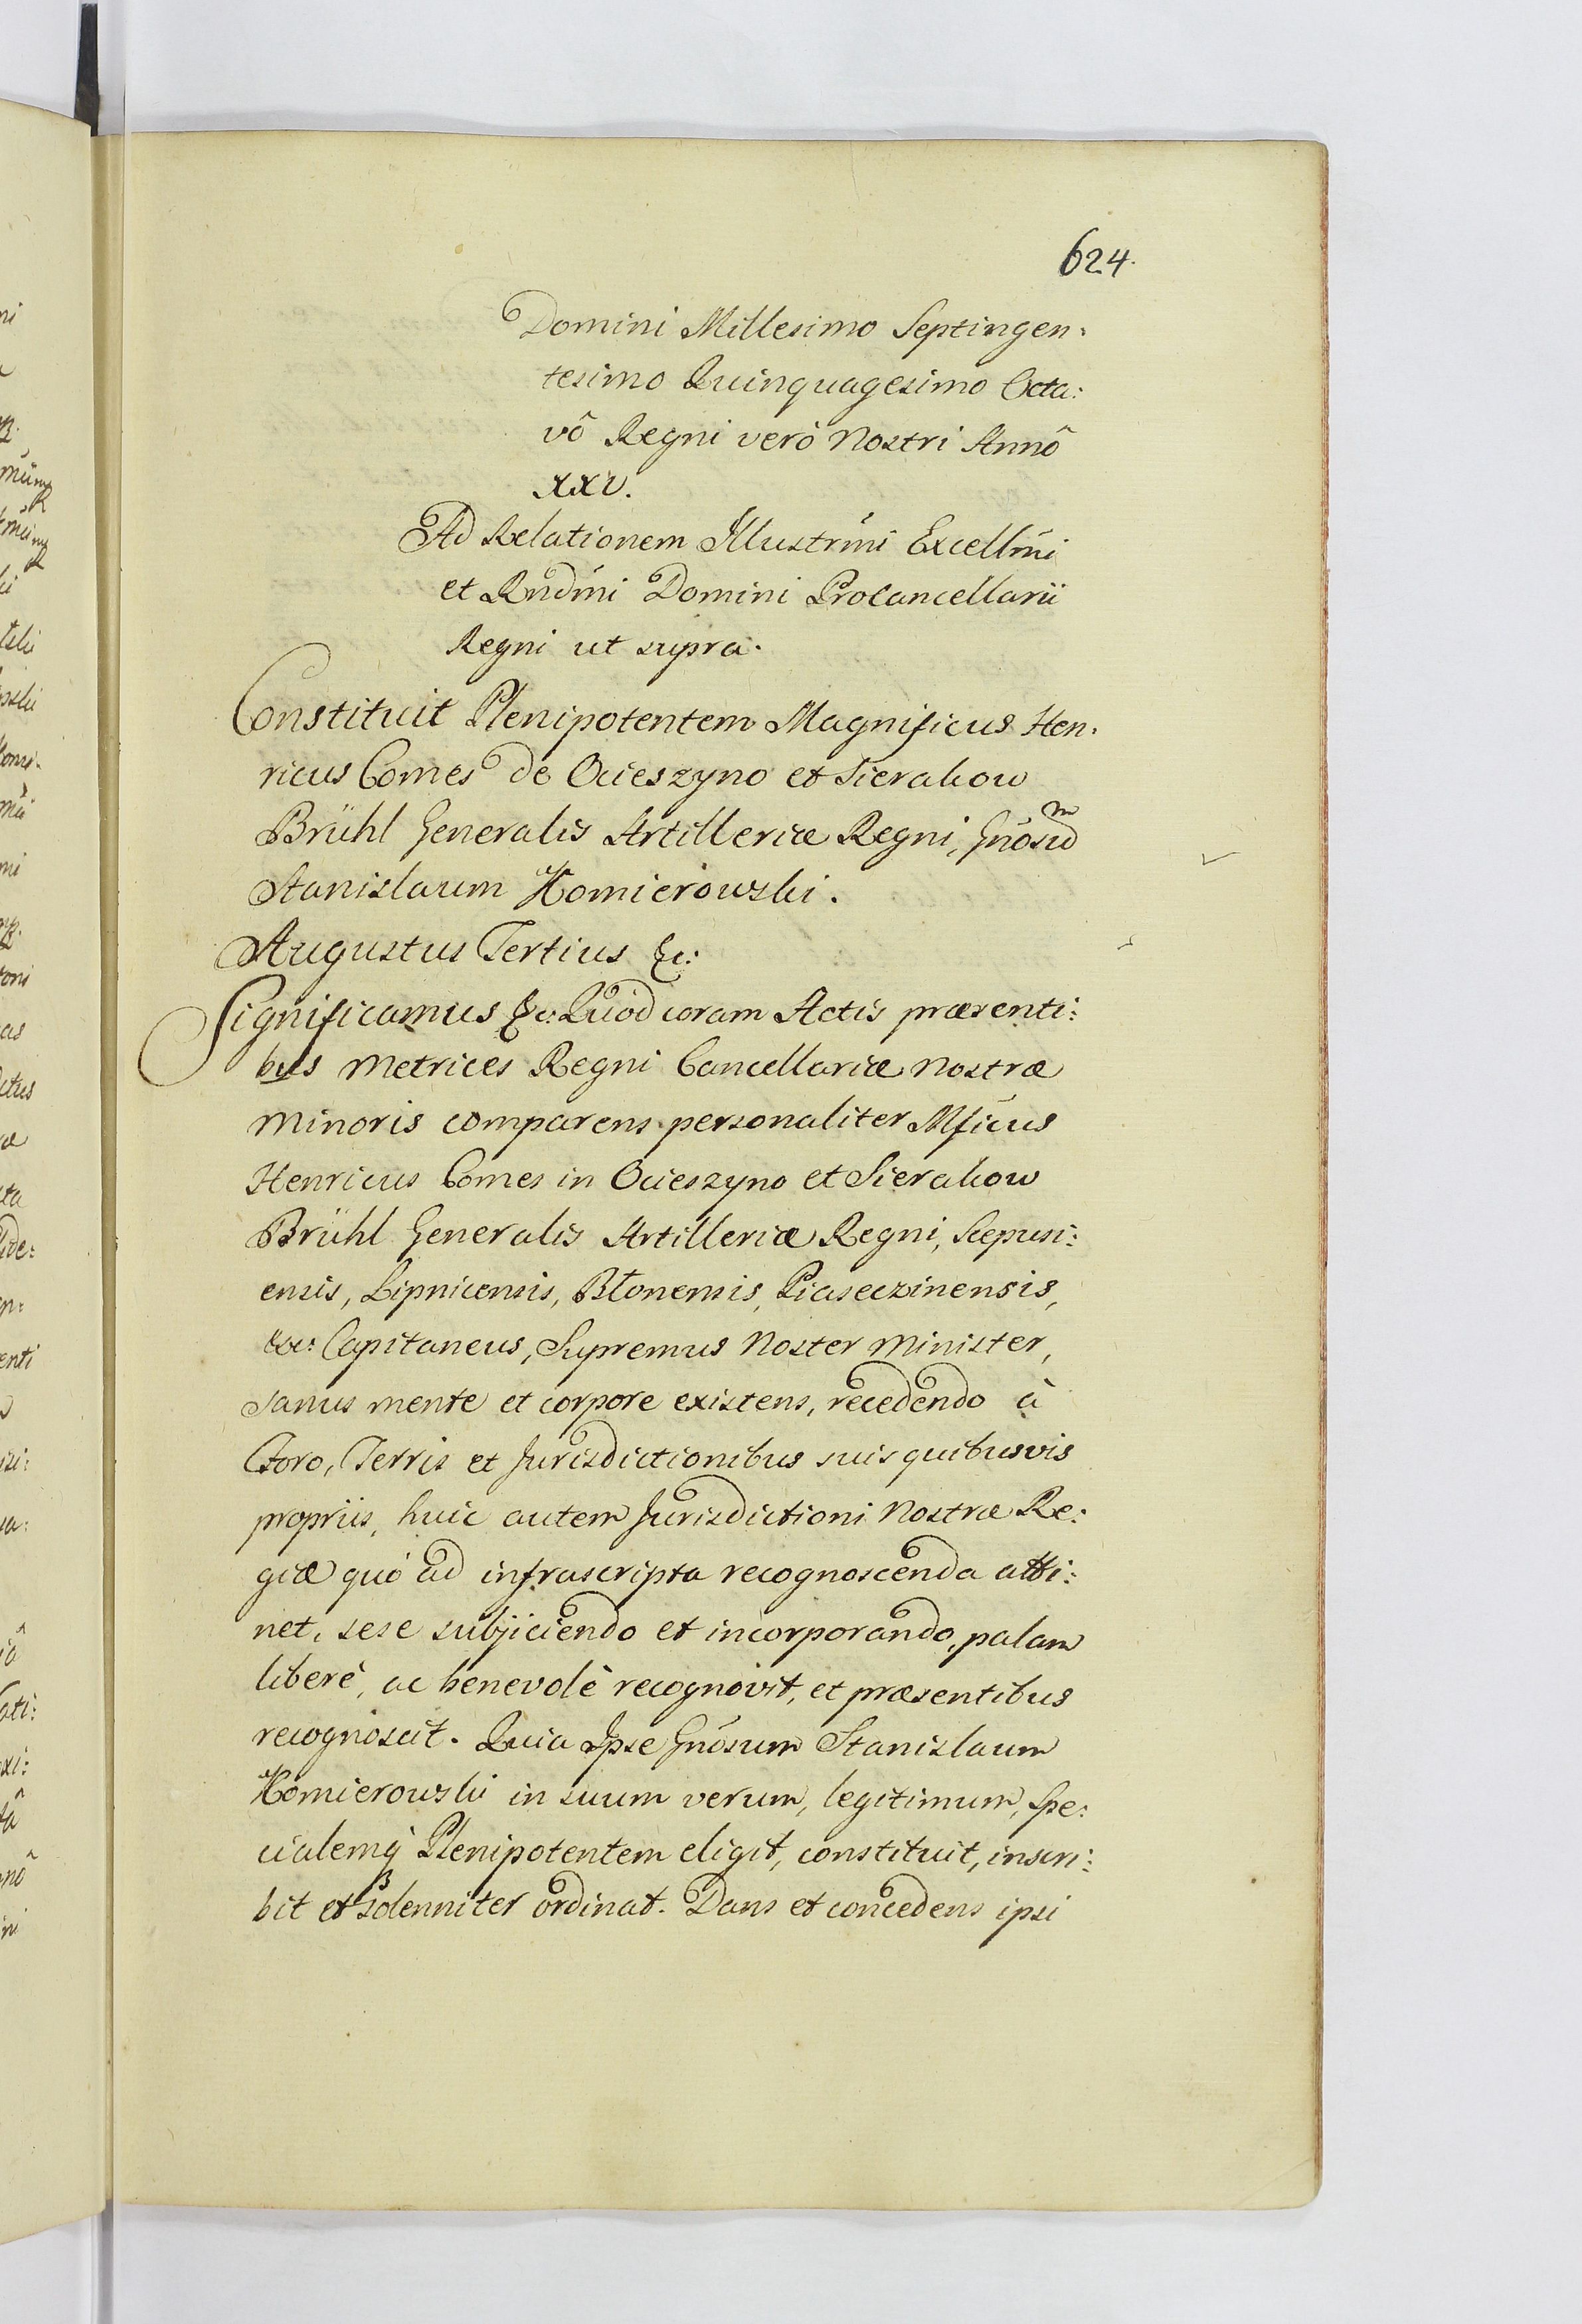 624.
Domini Millesimo Septingen:
tesimo Quinquagesimo Octa:
vô Regni verò Nostri Annô
XXV.
Ad Relationem Illustrm̃i Excellm̃i
et Rndm̃i Domini Procancellarii
Regni ut supra.
Constituit Plenipotentem Magnificus Hen:
ricus Comes de Ocieszyno et Sierakow
Brühl Generalis Artilleriæ Regni, Gnõsum
Stanislaum Komierowski.
Augustus Tertius &c:
Significamus &c: Quod coram Actis præsenti:
bus Metrices Regni Cancellariæ Nostræ
Minoris comparens personaliter Mficus
Henricus Comes in Ocieszyno et Sierakow
Brühl Generalis Artilleriæ Regni, Scepusi:
ensis, Lipnicensis, Błonensis, Piaseczinensis,
&c: Capitaneus, Supremus Noster Minister,
sanus mente et corpore existens, recedendo à
Foro, Terris et Jurisdictionibus suis quibusvis
propriis, huic autem Jurisdictioni Nostræ Re:
giæ quò ad infrascripta recognoscenda atti:
net, sese subjiciendo et incorporando, palam
liberè, ac benevolè recognovit, et præsentibus
recognoscit. Quia Ipse Gnõsum Stanislaum
Komierowski in suum verum, legitimum, Spe:
cialemq̃ Plenipotentem eligit, constituit, inscri:
bit et solenniter ordinat. Dans et concedens ipsi